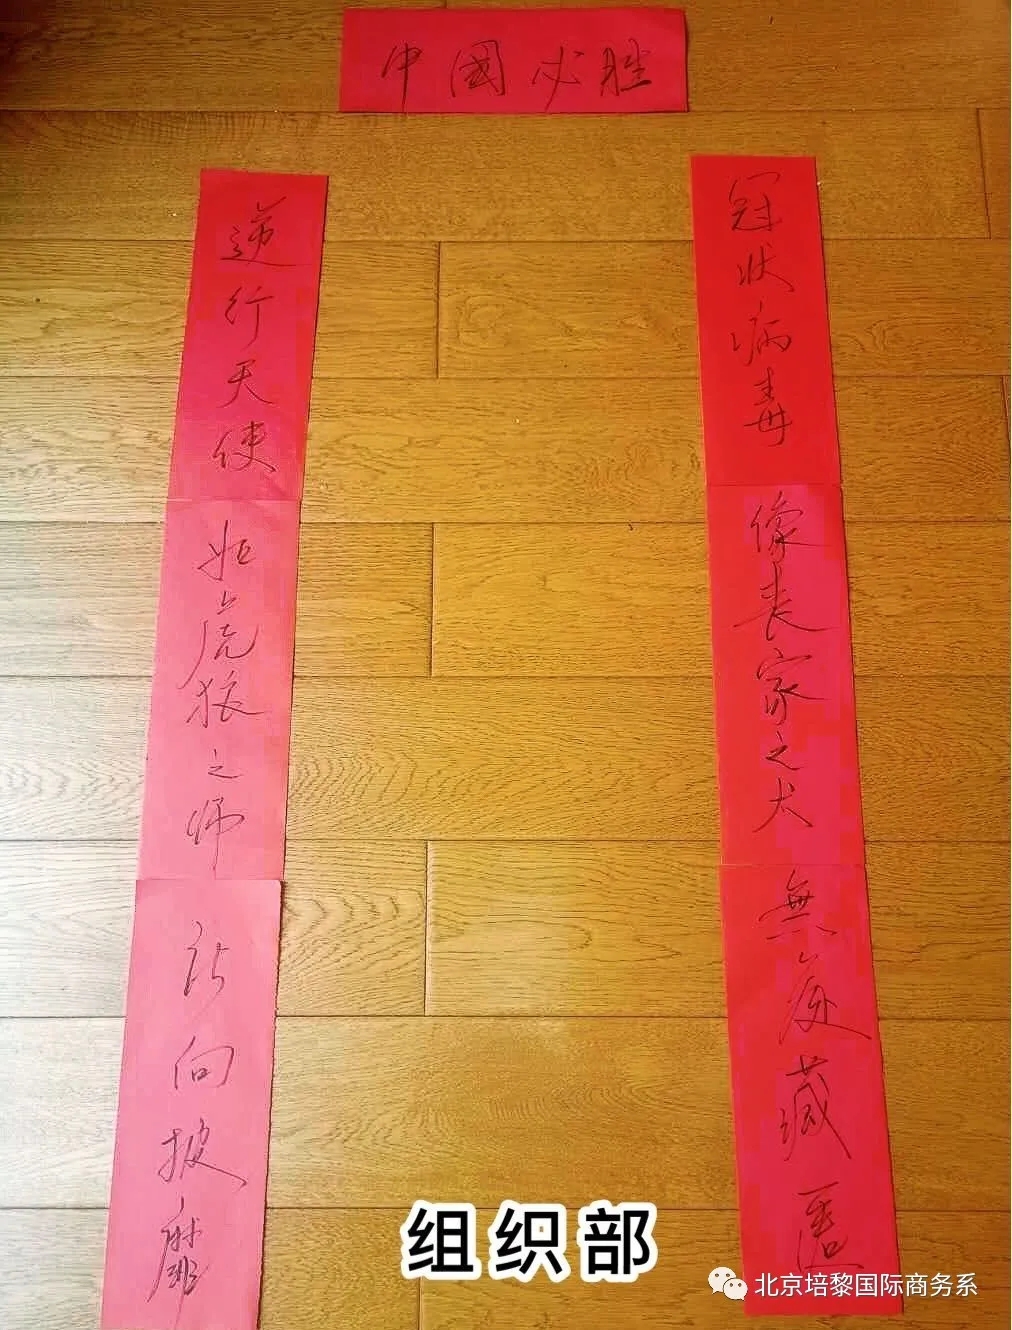 中國必胜
冠状病毒
像丧家之犬
無处藏匿
逆行天使
如虎狼之师
所向披靡
组织部
北京培黎国际商务系